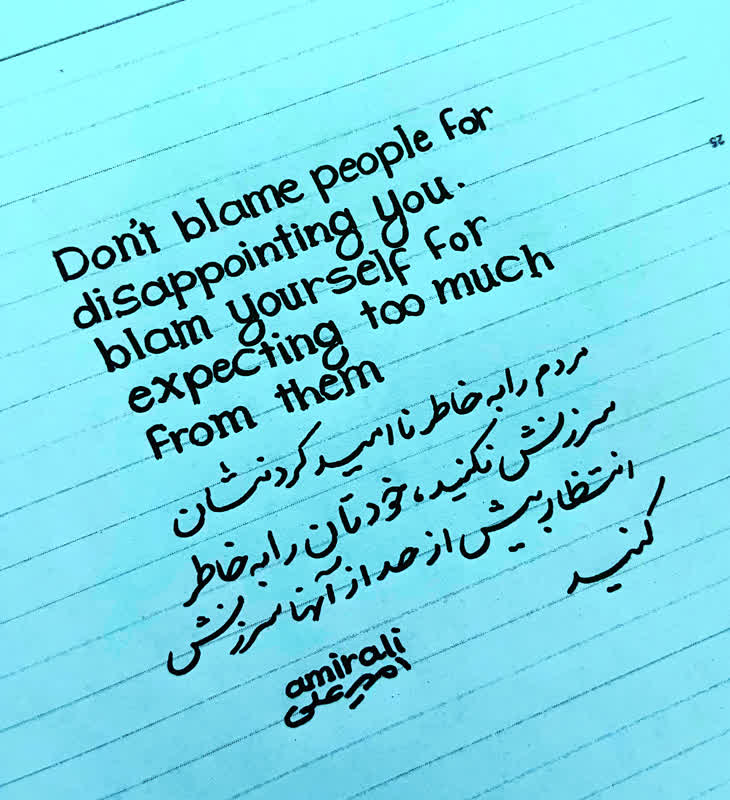 25
Don't blame people for
disappointing you.
blam yourself for
expecting too much
From them
مردم را به خاطر ناامید کردنشان
سرزنش نکنید، خودتان را به خاطر
انتظار بیش از حد از آنها سرزنش
کنید
amirali
امیرعلی